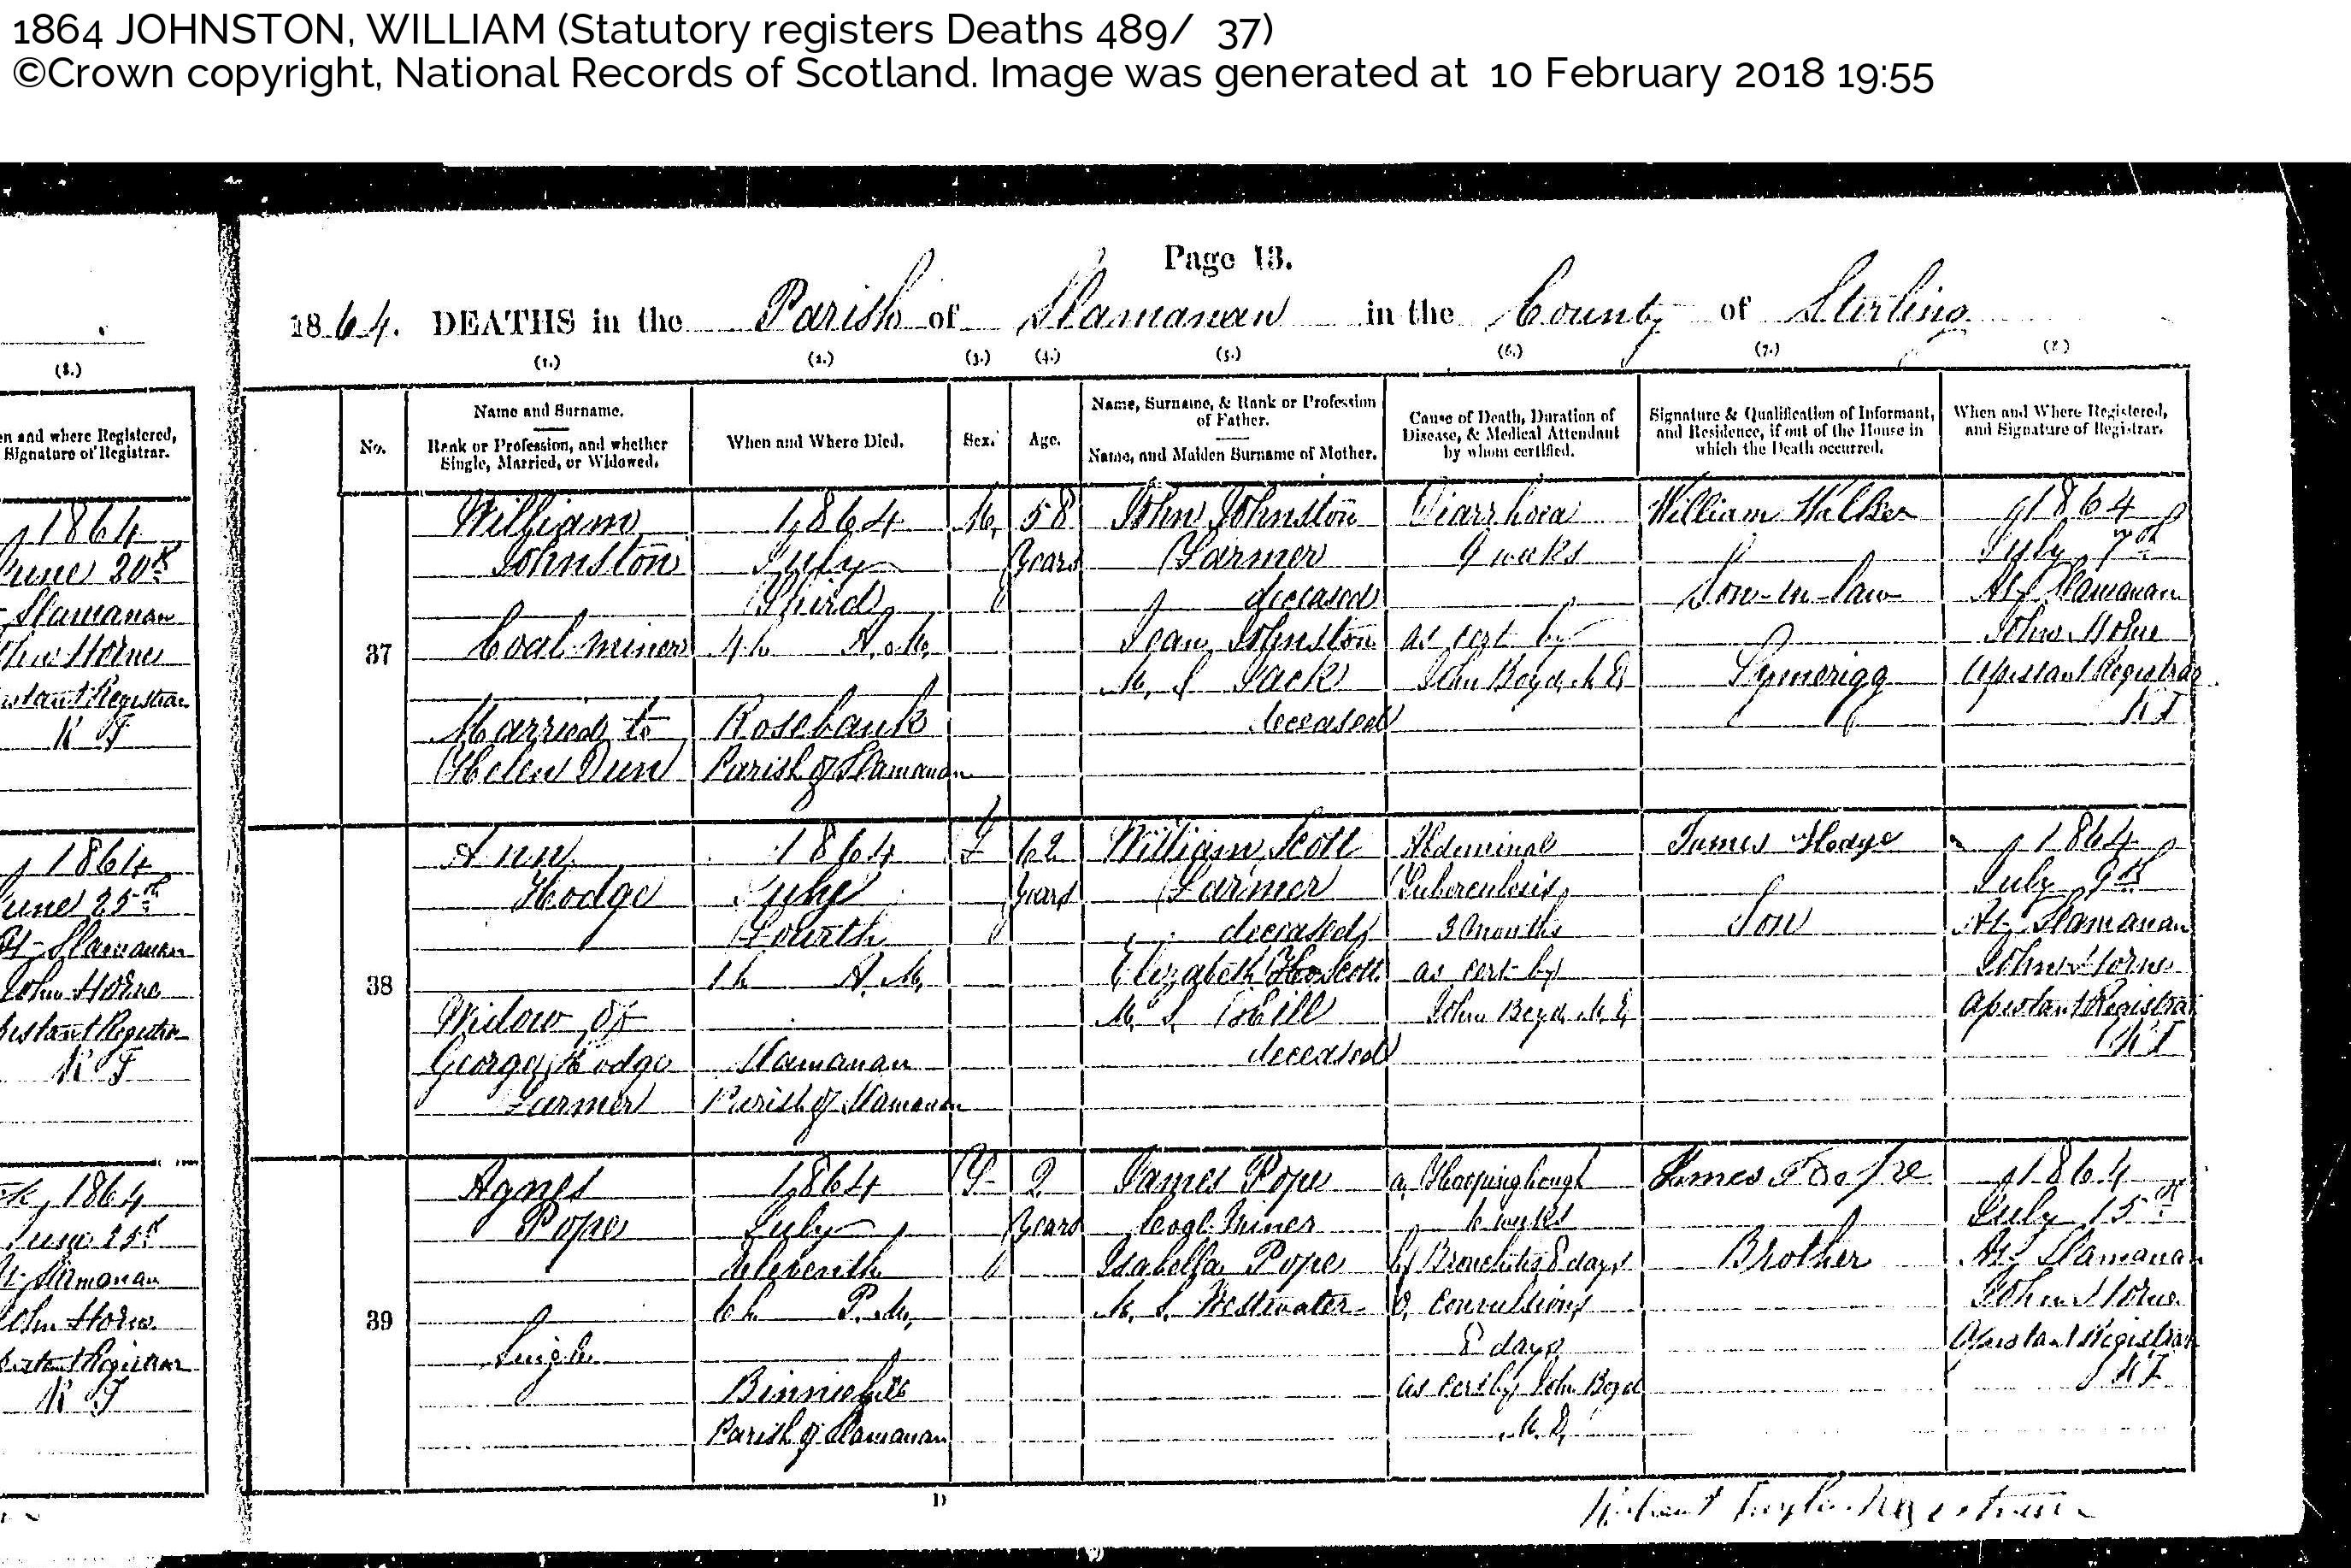 1864 JOHNSTON, WILLIAM (Statutory registers Deaths 489/ 37)
©Crown copyright, National Records of Scotland. Image was generated at 10 February 2018 19:55
Page 13.
1864. DEATHS in the Parish of Slamanan in the County of Stirling
(1.) (2.) (3.) (4.) (5.) (6.) (7.) (8.)
No.
Name and Surname.
Rank or Profession, and whether
Single, Married, or Widowed.
When and Where Died.
Sex.
Age.
Name, Surname, & Rank or Profession
of Father.
Name, and Maiden Surname of Mother.
Cause of Death, Duration of
Disease, & Medical Attendant
by whom certified.
Signature & Qualification of Informant,
and Residence, if out of the House in
which the Death occurred.
When and Where Registered,
and Signature of Registrar.
37
William
Johnston
Coal miner
Married to
Helen Dun
1864
July
Third
4 h A. M.
Rosebank
Parish of Slamanan
M.
58
Years
John Johnston
Farmer
deceased
Jean Johnston
M. S. Jack
deceased
Diarrhoea
9 weeks
as cert by
John Boyd M. D.
William Walker
Son-in-law
Lymerigg
1864
July 7th
At Slamanan
John Horne
Assistant Registrar
R T
38
Ann
Hodge
Widow of
George Hodge
Farmer
1864
July
Fourth
1 h A. M.
Slamanan
Parish of Slamanan
F
62
Years
William Scott
Farmer
deceased
Elizabeth Scott
M. S. Gill
deceased
Abdominal
Tuberculosis
as cert by
John Boyd M. D.
James Hodge
Son
1864
July 9th
At Slamanan
John Horne
Assistant Registrar
R T
39
Agnes
Pope
Single
1864
July
Eleventh
6 h P. M.
Binniehill
Parish of Slamanan
F
2
Years
James Pope
Coal Miner
Isabella Pope
M. S. Westwater
a, Hooping Cough
6 weeks
b, Bronchitis 8 days
c, Convulsions
8 days
as cert by John Boyd
M. D.
James Pope
Brother
1864
July 15th
At Slamanan
John Horne
Assistant Registrar
R T
D
Registrar
(8.)
en and where Registered,
Signature of Registrar.
1864
June 20th
Slamanan
John Horne
istant Registrar
R T
1864
June 25th
At Slamanan
John Horne
sistant Registrar
R T
1864
June 25th
At Slamanan
John Horne
sistant Registrar
R T